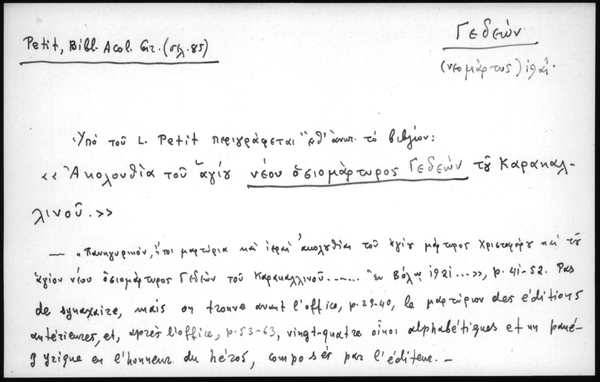 Petit, Bibl. Acol. Gr. (σελ. 85)
Γεδεών
(νεομάρτυς) 1921.
Ὑπὸ τοῦ L. Petit περιγράφεται τὸ βιβλίον:
«Ἀκολουθία τοῦ ἁγίου νέου ὁσιομάρτυρος Γεδεὼν τοῦ Καρακαλ-
λινοῦ.»
— «Πανηγυρικόν, ἤτοι μαρτύρια καὶ ἱεραὶ ἀκολουθίαι τοῦ ἁγίου μάρτυρος Χριστοφόρου καὶ τοῦ
ἁγίου νέου ὁσιομάρτυρος Γεδεὼν τοῦ Καρακαλλινοῦ...... ἐν Βόλῳ 1921...», p. 41-52. Pas
de synaxaire, mais on trouve avant l'office, p. 29-40, le μαρτύριον des éditions
antérieures, et, après l'office, p. 53-63, vingt-quatre οἶκοι alphabétiques et un pané-
gyrique en l'honneur du héros, composés par l'éditeur. —